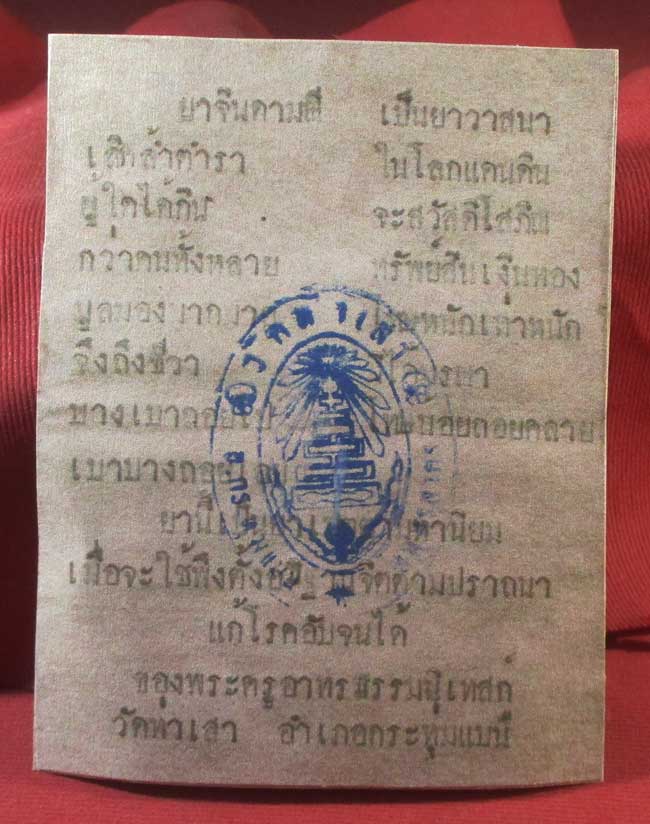 ยาจินดามณี เป็นยาวาสนา
เลิศล้ำตำรา ในโลกแดนดิน
ผู้ใดได้กิน จะสวัสดิโสภิณ
กว่าคนทั้งหลาย ทรัพย์สินเงินทอง
มูลมอง หนักเท่าหนัก
จึงถึงชีวา
บางเบาถอย น้อยถอยคลาย
เบาบางถอย
ยานี้เป็น มหานิยม
เมื่อจะใช้พึงตั้งอธิฐานจิตตามปราถนา
แก้โรคอับจนได้
ของพระครูอาทรธรรมนิเทสก์
วัดท่าเสา อำเภอกระทุ่มแบน
วัดท่าเสา